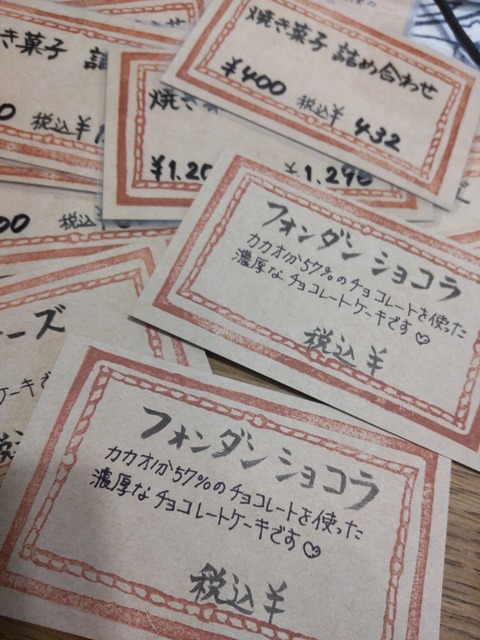 焼き菓子 詰め合わせ
¥400 税込¥ 432
き菓子
税込¥
焼き
¥1,20
¥1,296
税込
フォンダン ショコラ
カカオが57%のチョコレートを使った
濃厚なチョコレートケーキです♡
税込¥
ーズ
ケーキで
フォンダン ショコラ
カカオが57%のチョコレートを使った
濃厚なチョコレートケーキです♡
税込¥